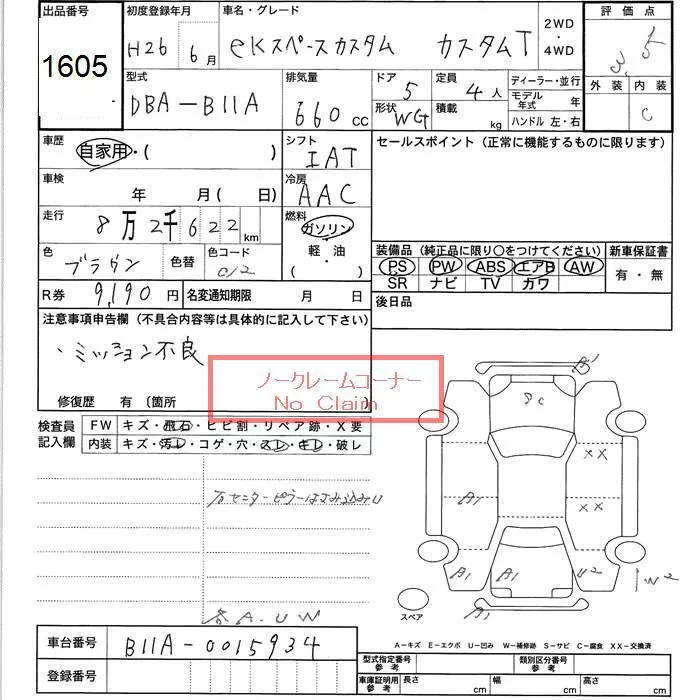 出品番号 初度登録年月 車名・グレード 2WD・4WD 評価点
1605 H26 6月 eKスペースカスタム カスタムT 3.5
型式 排気量 ドア 定員 ディーラー・並行 外装 内装
DBA-B11A 660cc 5 4人 モデル年式 年 C
形状 WG 積載 kg ハンドル 左・右
車歴 自家用・( ) シフト IAT セールスポイント（正常に機能するものに限ります）
車検 年 月( 日) 冷房 AAC
走行 8万2千622km 燃料 ガソリン
軽・油
・( )
色 ブラウン 色替 色コード C12 装備品（純正品に限り○をつけてください） 新車保証書
PS PW ABS エアB AW 有・無
SR ナビ TV カワ
R券 9,190円 名変通知期限 月 日 後日品
注意事項申告欄（不具合内容等は具体的に記入して下さい）
・ミッション不良
ノークレームコーナー
No Claim
修復歴 有 〔箇所
検査員記入欄 FW キズ・飛石・ヒビ割・リペア跡・X要
内装 キズ・汚レ・コゲ・穴・スレ・キレ・破レ
右センターピラーはさみ込みU
各A.U.W
XX
XX
A1
A1 A1 U2 W2
A1
スペア
A-キズ E-エクボ U-凹み W-補修跡 S-サビ C-腐食 XX-交換済
車台番号 B11A-0015934
登録番号
型式指定番号参考 類別区分番号参考
車庫証明用参考 長さ cm 幅 cm 高さ cm